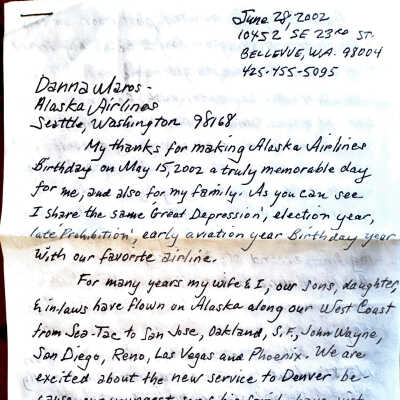 June 28, 2002
10452 SE 23RD ST.
BELLEVUE, WA. 98004
425-455-5095
Danna Maros -
Alaska Airlines
Seattle, Washington 98168
My thanks for making Alaska Airlines
Birthday on May 15, 2002 a truly memorable day
for me, and also for my family. As you can see
I share the same 'Great Depression', election year,
'late Prohibition', early aviation year Birthday year
with our favorite airline.
For many years my wife & I, our sons, daughter,
& in-laws have flown on Alaska along our West Coast
from Sea-Tac to San Jose, Oakland, S.F., John Wayne,
San Diego, Reno, Las Vegas and Phoenix. We are
excited about the new service to Denver be-
cause our youngest son